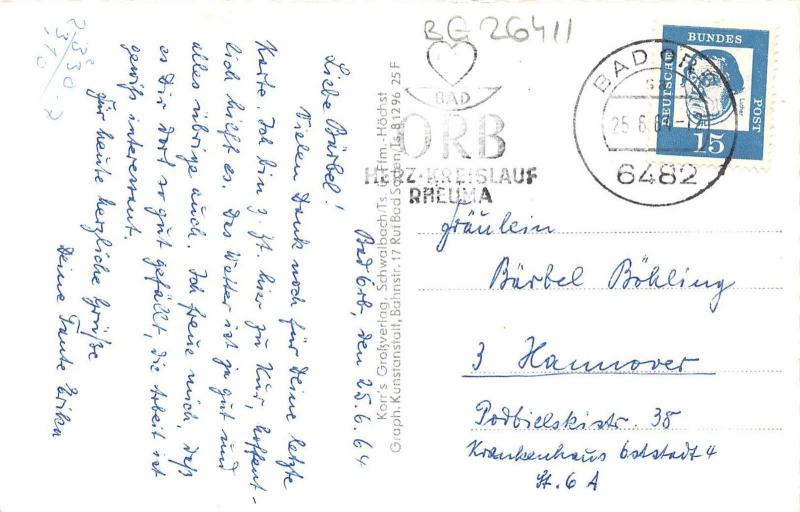 BG 26411
Bad Orb, den 25.6.64
Liebe Bärbel!
Vielen Dank noch für Deine letzte
Karte. Ich bin z. Zt. hier zur Kur, hoffent-
lich hilft es. Das Wetter ist ja gut und
alles übrige auch. Ich freue mich, daß
es Dir dort so gut gefällt, die Arbeit ist
gewiß interessant.
Für heute herzliche Grüße
Deine Tante Erika
Korr's Großverlag, Schwalbach/Ts. üb. Ffm.-Höchst
Graph. Kunstanstalt, Bahnstr. 17 Ruf Bad Soden/Ts. 8 1296 25 F
BAD
ORB
HERZ-KREISLAUF
RHEUMA
BAD ORB
25.6.64-17
6482
DEUTSCHE
BUNDES
POST
Luther
15
Fräulein
Bärbel Böhling
3 Hannover
Podbielskistr. 38
Krankenhaus Oststadt 4
St. 6 A